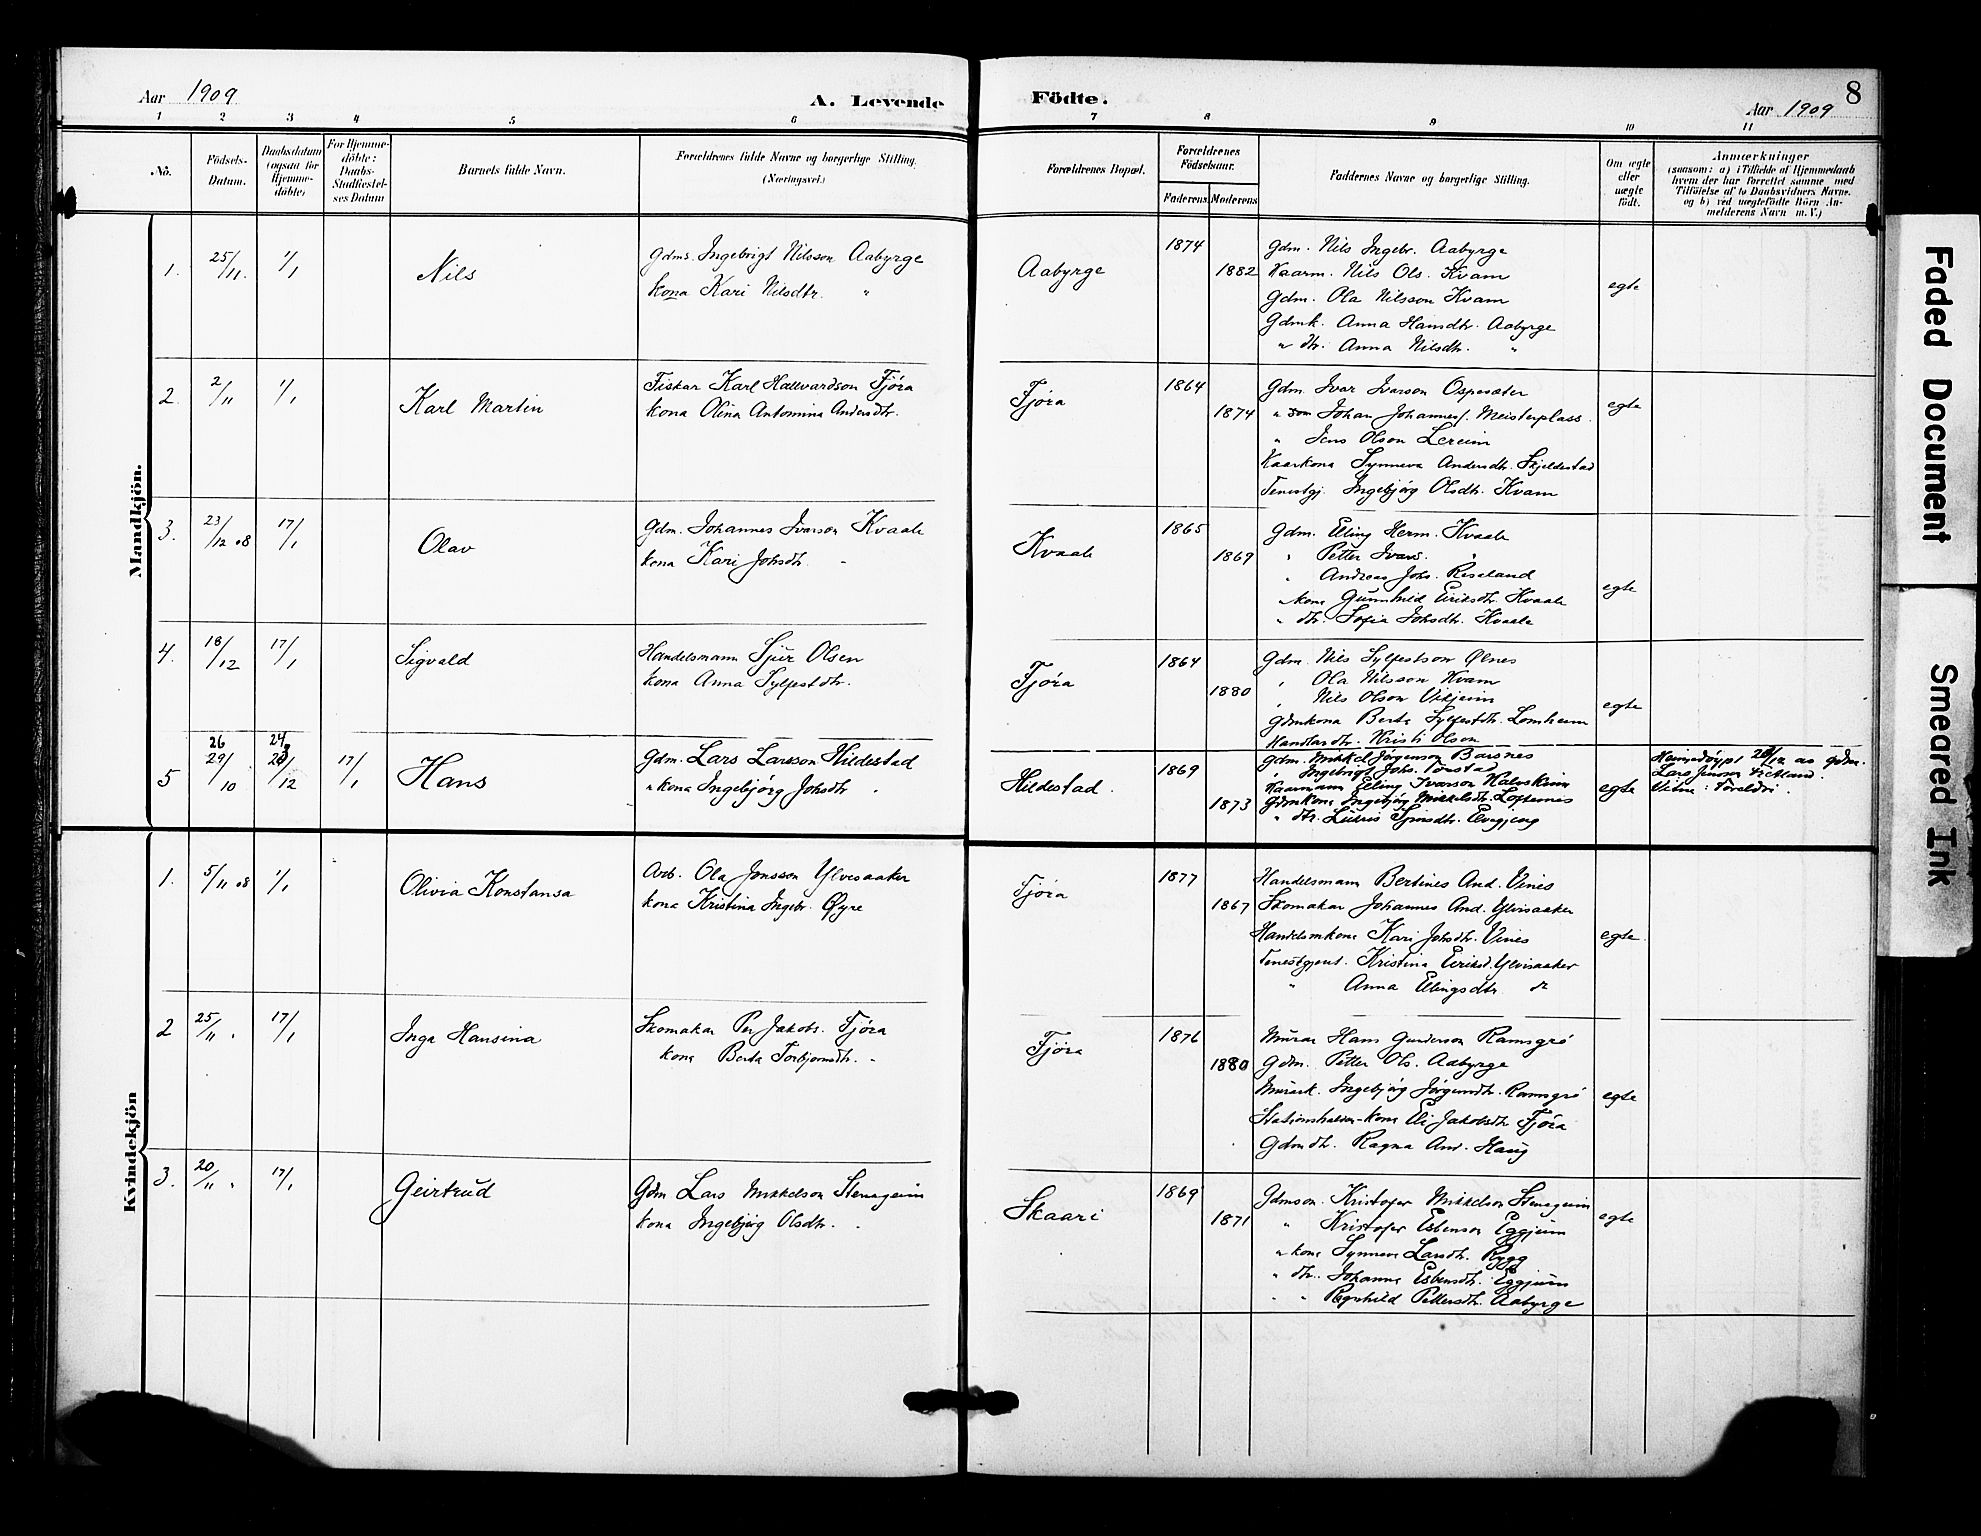 Aar 1909
A. Levende
Födte.
8
Aar 1909
1 2 3 4 5 6 7 8 9 10 11
No.
Födsels-
Datum.
Daabsdatum
(ogsaa for
Hjemme-
döbte)
For Hjemme-
döbte:
Daabs-
Stadfæstel-
ses Datum
Barnets fulde Navn.
Forældrenes fulde Navne og borgerlige Stilling.
(Næringsvei.)
Forældrenes Bopæl.
Forældrenes
Födselsaar.
Faderens
Moderens
Faddernes Navne og borgerlige Stilling.
Om ægte
eller
uægte
födt.
Anmærkninger
(saasom: a) i Tilfælde af Hjemmedaab
hvem der har forrettet samme med
Tilföielse af to Daabsvidners Navne.
og b) ved uægtefödte Börn An-
melderens Navn m. V.)
Mandkjön.
1. 25/11. 1/1 Nils
Gdms. Ingebrigt Nilsson Aabyrge
kona Kari Nilsdtr. "
Aabyrge
1874
1882
Gdm. Nils Ingebr. Aabyrge
Kaarm. Nils Ols. Kvam
Gdm. Ola Nilsson Kvam
Gdmk. Anna Hansdtr. Aabyrge
" dtr. Anna Nilsdtr. "
egte
2. 2/11 1/1 Karl Martin
Fiskar Karl Hallvardson Fjøra
kona Olina Antomina Andersdtr.
Fjøra
1864
1874
Gdm. Ivar Ivarson Ospesæter
" son Johan Johannes. Meisterplass.
" Jens Olson Lereim
Kaarkona Synneva Andersdtr. Skjeldestad
Tenestgj. Ingebjörg Olsdtr. Kvam
egte
3. 23/12 08 17/1 Olav
Gdm. Johannes Ivarson Kvaale
kona Kari Johsdtr. "
Kvaale
1865
1869
Gdm. Elling Herm. Kvaale
" Petter Ivars. "
" Andreas Johs. Reseland
" kona Gunnhild Eiriksdtr. Kvaale
" dtr. Sofia Johsdtr. Kvaale
egte
4. 18/12 17/1 Sigvald
Handelsmann Sjur Olsen
kona Anna Sylfestdtr.
Fjøra
1864
1880
Gdm. Nils Sylfestson Ølnes
" Ola Nilsson Kvam
" Nils Olson Vikjeim
Gdmkona Berta Sylfestdtr. Lomheim
Handlardtr. Kristi Olson
egte
5 26 29/10 24 23/12 17/1 Hans
Gdm. Lars Larsson Hildestad
" kona Ingebjörg Johsdtr "
Hildestad.
1869
1873
Gdm. Mikkel Jørgenson Barsnes
" Ingebrigt Johs.
Kaarmann Elling Ivarson
Gdmkona Ingebjörg Mikkelsdtr. Loftesnes
" dtr.
egte
Heimedöypt 23/12 av gdm.
Lars Jenson
Vitne: Foreldri.
Kvindekjön
1. 5/11 08 1/1 Olivia Konstansa
Arb. Ola Jonsson Ylvesaaker
kona Kristina Ingebr. Øyre
Fjøra
1877
1867
Handelsmann Bertines And. Vines
Skomakar Johannes And. Ylvisaaker
Handelsmkona Kari Johsdtr. Vines
Tenestgjent. Kristina Eiriksd. Ylvisaaker
" Anna Ellingsdtr do
egte.
2 25/11 " 17/1 Inga Hansina
Skomakar Per Jakobs. Fjøra
kona Berta Torbjørnsdtr. "
Fjøra
1876
1880
Murar Hans Gunderson Ramsgrø
Gdm. Petter Ols. Aabyrge
Murark. Ingebjörg Jørgensdtr. Ramsgrø
Stationshalar-kona Eli Jakobsdtr Fjøra
Gdmdtr. Ragna And. Haug
egte
3. 20/11 " 17/1 Geirtrud
Gdm Lars Mikkelson Stenegeim
kona Ingebjörg Olsdtr. "
Skaari
1869
1871
Gdmson. Kristofer Mikkelson Stenegeim
" Kristofer Esbenson Eggjeim
" kona Synneva Larsdtr. Rygg
" dtr. Johanna Esbensdtr. Eggjeim
" " Ragnhild Pettersdtr. Aabyrge
egte
Faded Document
Smeared Ink